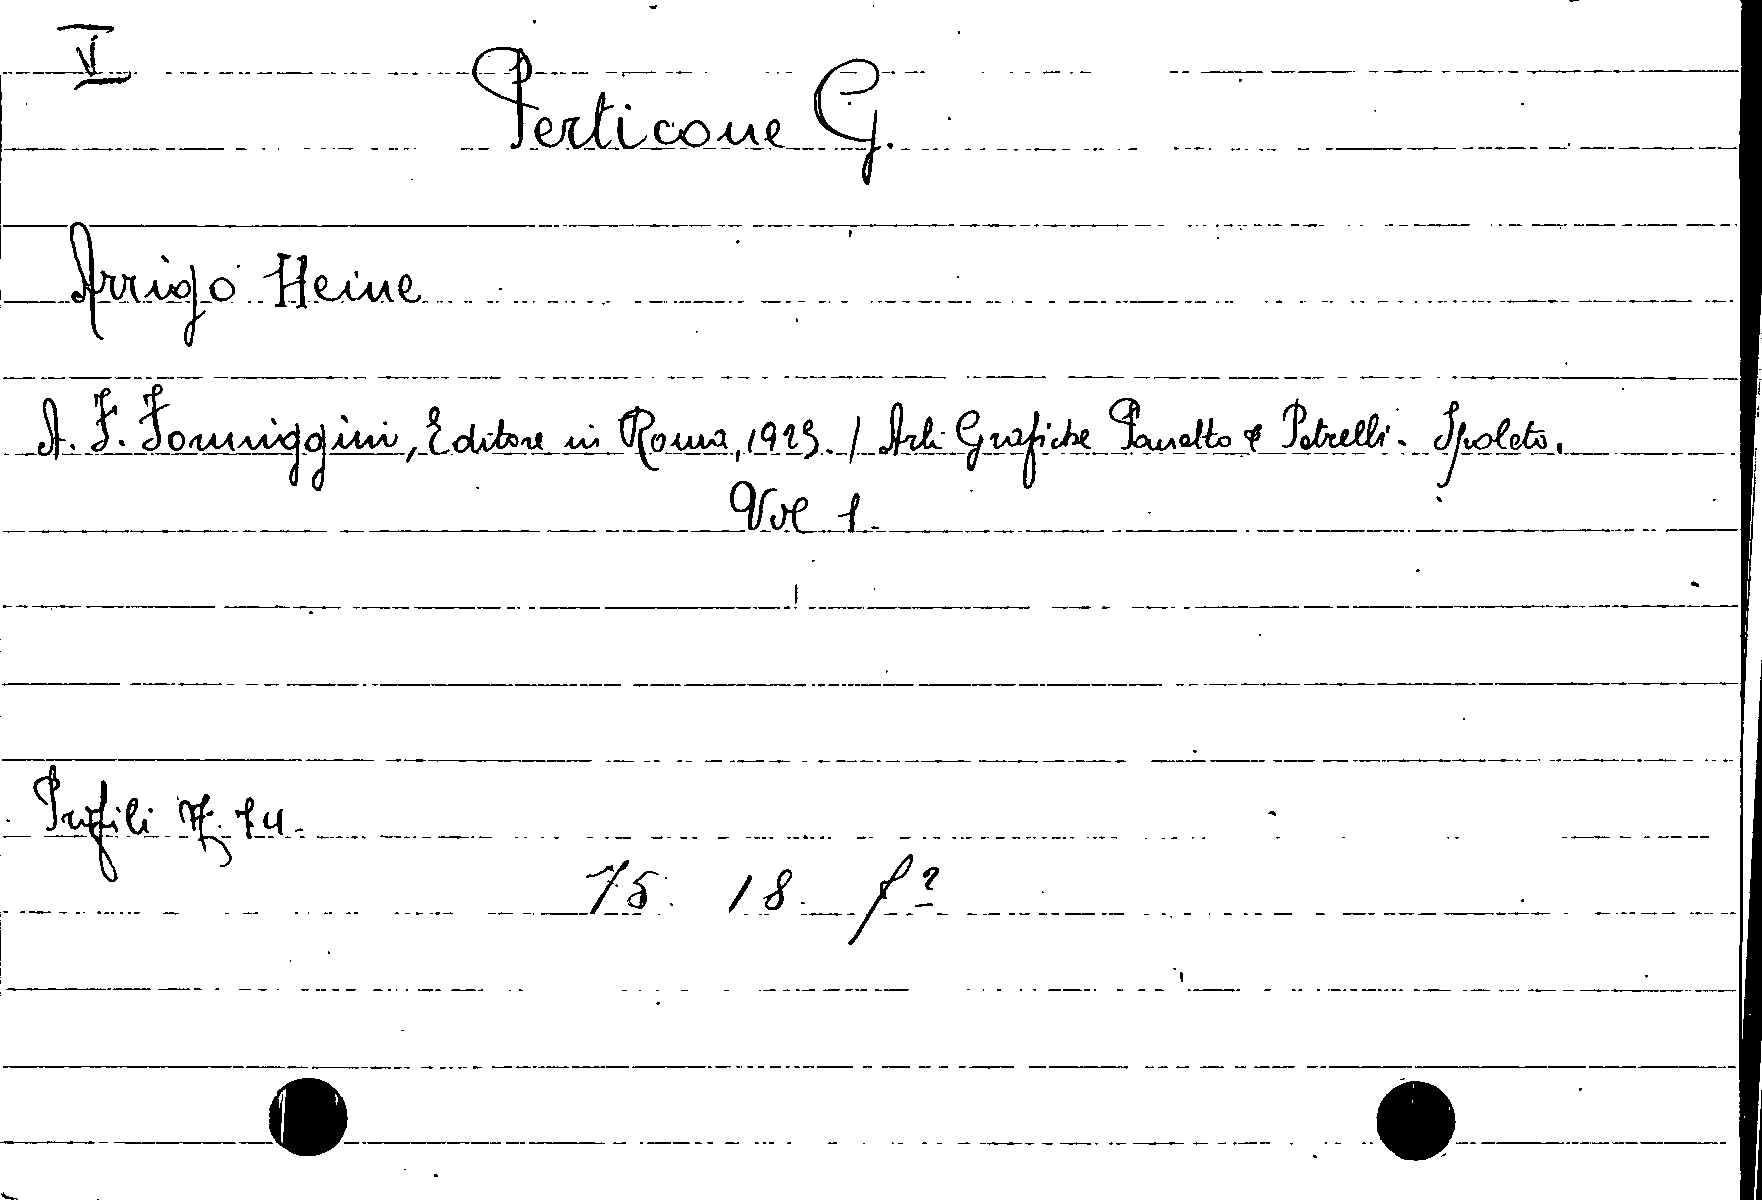 V
Perticone G.
Arrigo Heine
A. F. Formiggini, Editore in Roma, 1925. / Arti Grafiche Panetto & Petrelli. Spoleto.
Vol 1.
Profili N. 74.
75. 18. f²